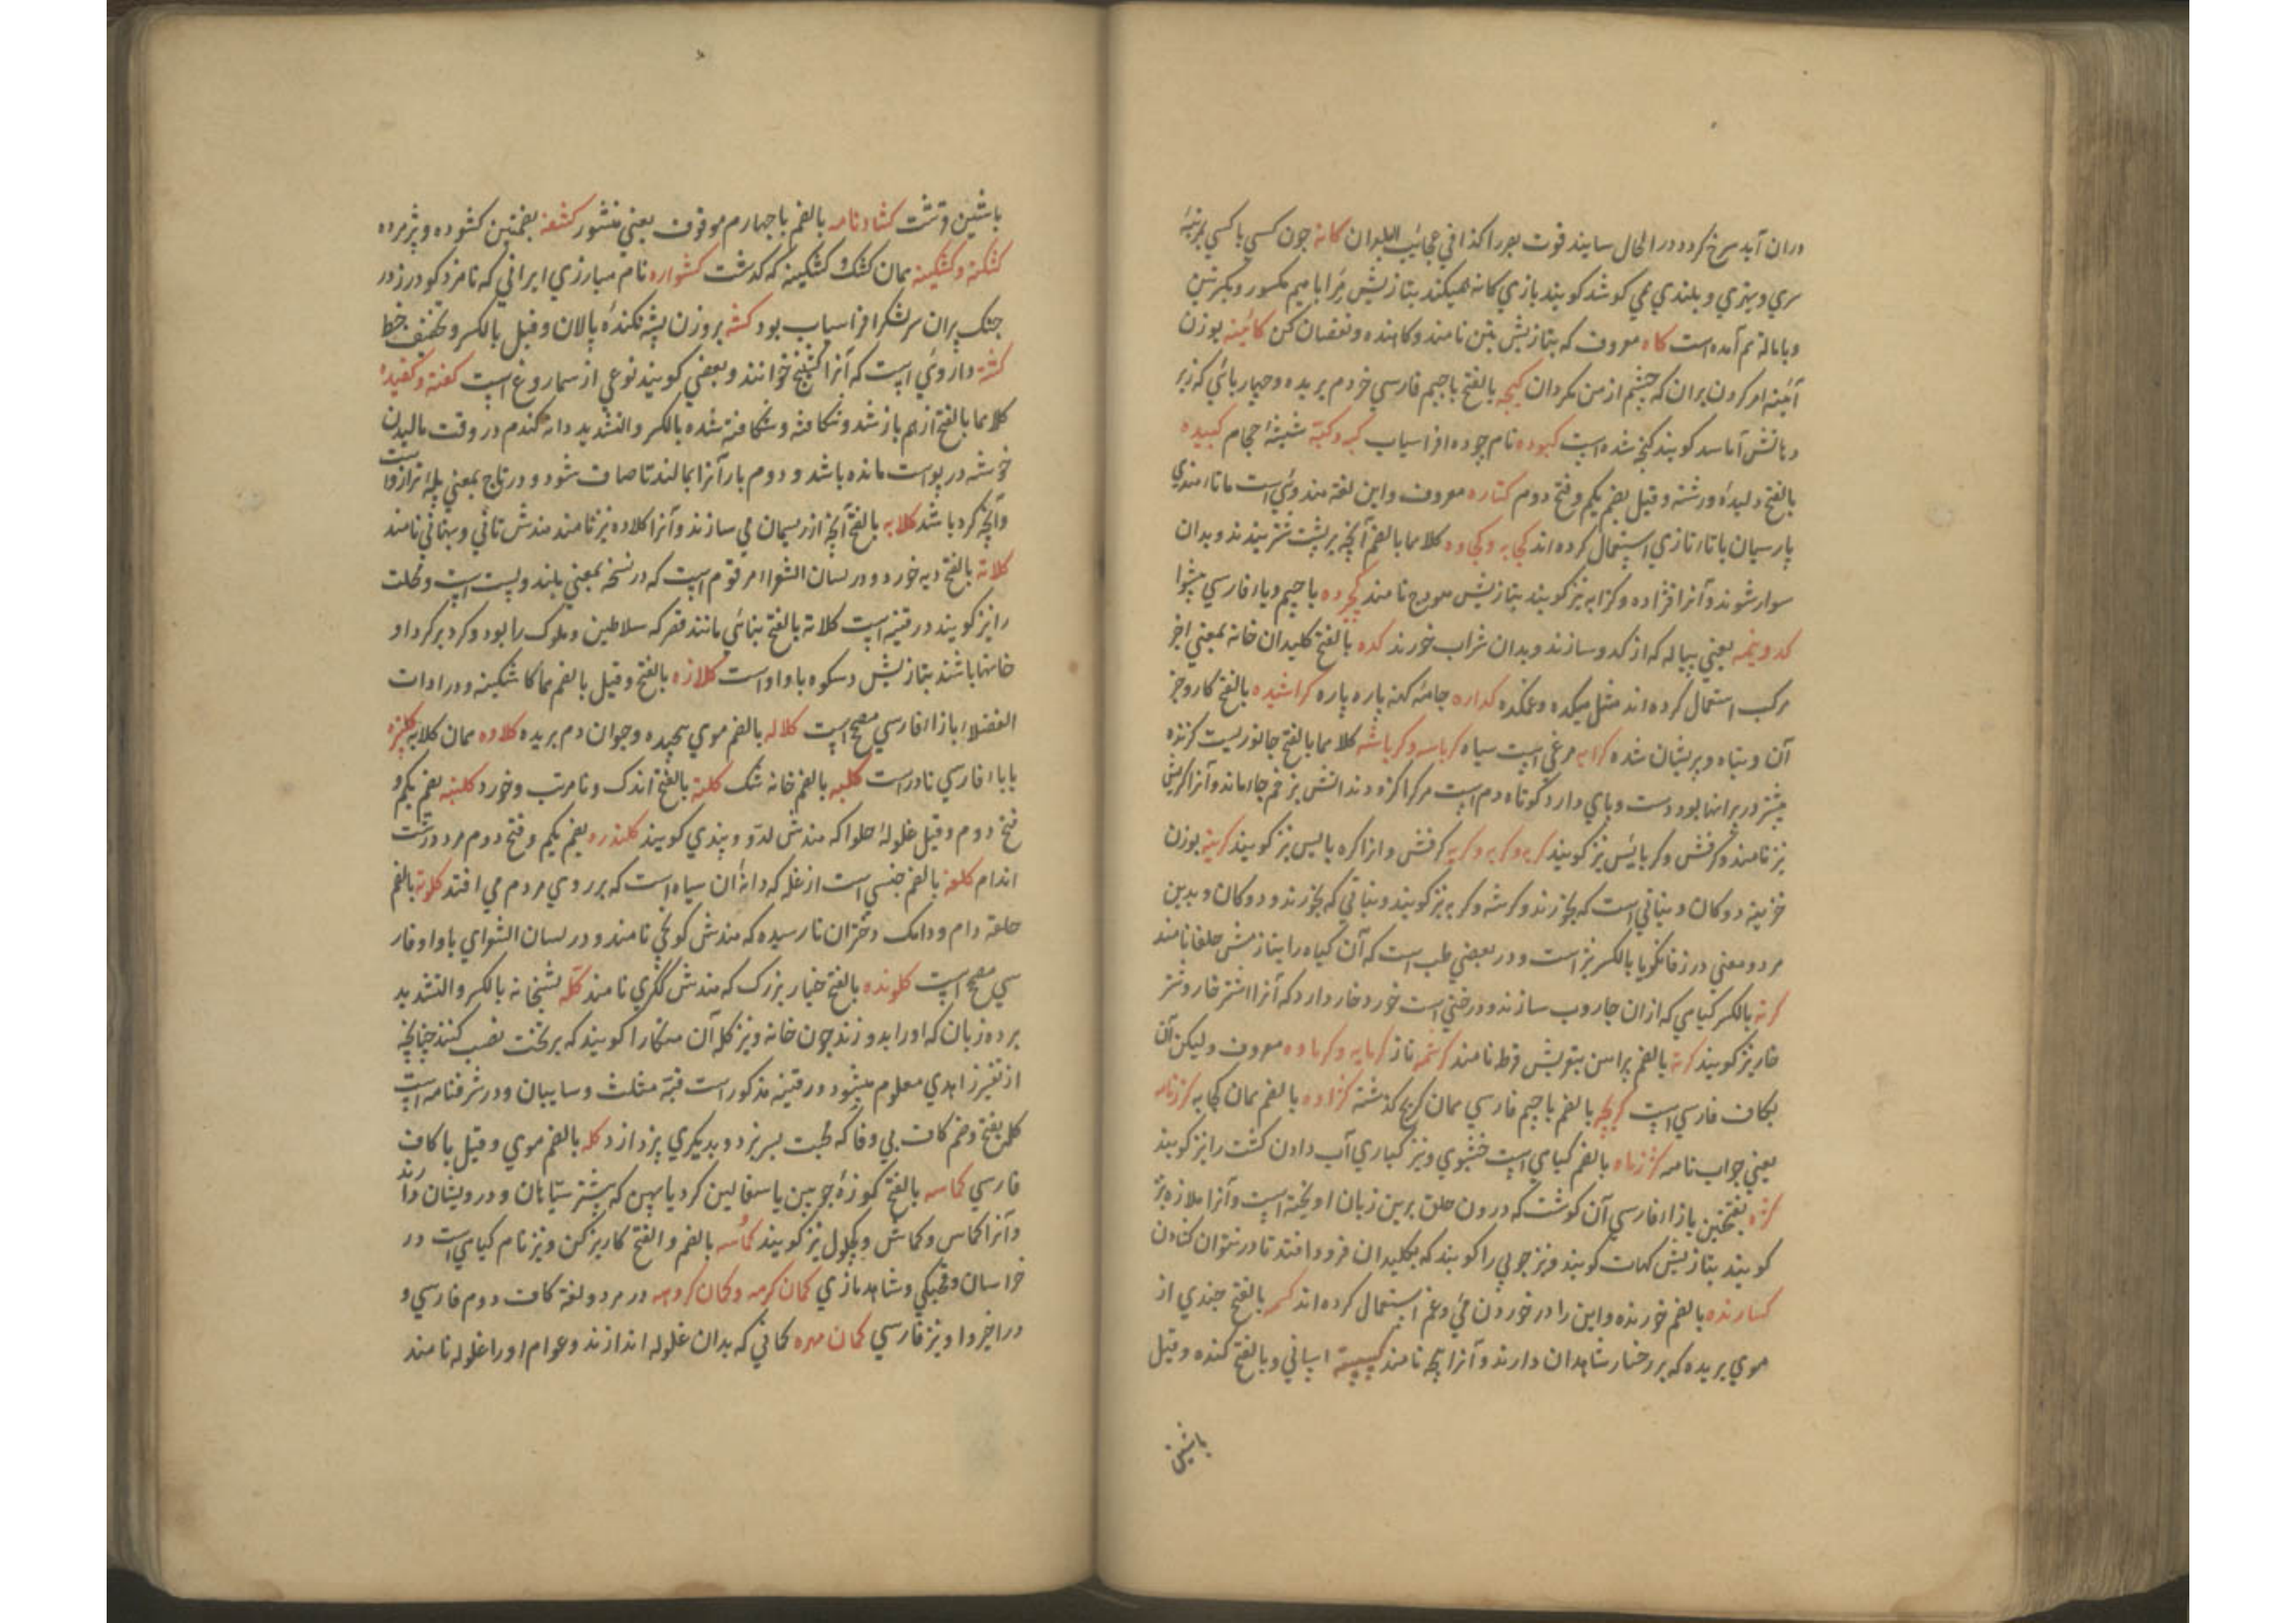 دران آید سرخ کردد در الحال سایند قوت بصر را کذا فی عجائب البلدان کانه چون کسی با کسی بمرتبهٔ
سری و بهتری و بلندی می کوشد کویند بازی کانه میکند بتازیش مرا با میم مکسور و بکرتین
و بامالة نیم آمده است کاه معروف که بتازیش تبن نامند و کاهنده و نقصان کن کائینه بوزن
آئینه امر کردن بران که چشم از من مکردان کبجه بالفتح با جیم فارسی خر دم بریده و چهارپائی که زیر
دهانش آماسد کویند کبجه شده است کبوده نام چوده افراسیاب کبه و کپه شیشهٔ حجام کبیده
بالفتح دلیده و رشته و قیل بضم یکم و فتح دوم کتاره معروف و این لغة هندوی است ما تاء هندی
پارسیان با تاء تازی استعمال کرده اند کجابه و کجاوه کلاهما بالفتح آنچه بر پشت شتر بندند و بدان
سوار شوند و آنرا قژاده و کژابه نیز کویند بتازیش هودج نامند با جیم و یاء فارسی پیشوا
کدوینه یعنی پیاله که از کدو سازند و بدان شراب خورند کده بالفتح کلیدان خانه بمعنی اخر
مرکب استعمال کرده اند مثل میکده و غمکده کداره جامه کهنه پاره پاره کراشیده بالفتح کار و جز
آن و تباه و پریشان شده مرغی است سیاه کرباسه و کرباشه کلاهما بالفتح جانوریست کزنده
بیشتر در ویرانها بود دست و پای دارد کوتاه دم است هرکرا کزد دندانش بزخم جا بماند و آنرا کربش
نیز نامند و کرفش و کربایس نیز کویند کرفش و انرا کره پالیس نیز کویند بوزن
خزینه دوکان و نباتی است که بخورند و کرشه و کربه نیز کویند و نباتی که بخورند و دوکان و بدین
هر دو معنی در زفانکویا بالکسر نیز است و در بعضی طب است که آن کیاه را بتازیش حلفا نامند
کرته بالکسر کیاهی که ازان جاروب سازند و درختی است خورد خاردار که آنرا اشتر خار و شتر
خار نیز کویند کرته بالضم پیراهن بتویش قرط نامند کرشمه ناز کرمابه و کرماوه معروف و لیکن آن
بکاف فارسی است بالضم با جیم فارسی همان کریج کذشته کژاوه بالفتح همان کجابه کزنامه
یعنی جواب نامه بالضم کیاهی است خشبوی و نیز کیاری آب دادن کشت را نیز کویند
کژه بفتحتین با زاء فارسی آن کوشت که درون حلق برین زبان اویخته است و آنرا ملازه نیز
کویند بتازیش لهات کویند و نیز چوبی را کویند که بکلیدان فرو افتد تا در نتوان کشادن
کسارنده بالضم خورنده و این را در خوردن می و غم استعمال کرده اند بالفتح چندی از
موی بریده که بر رخسار شاهدان دارند و آنرا نامند کسیسته اسپانی و بالفتح کنده و قیل
با شین
با شین وقشت کشادنامه بالضم با چهارم موقوف یعنی منشور کشفته بضمتین کشوده و پژمرده
کشکنه و کشکینه همان کشک و کشکینه که کذشت کشواره نام مبارزی ایرانی که نامزد کودرز در
جنک پیران سرلشکر افراسیاب بود کشه بروزن پشه تکنده پالان و قیل بالکسر و تخفیف خط
کشته داروئی است که آنرا کشنج خوانند و بعضی کویند نوعی از سماروغ است کفته و کفیده
کلاهما بالفتح از هم باز شد و شکافته و شکافته شده بالکسر و التشدید دانه کندم در وقت مالیدن
خوشه در پوست مانده باشد و دوم بار آنرا بمالند تا صاف شود و در تاج بمعنی پلهٔ ترازو است
و آنچه کرد باشد کلابه بالفتح آنچه از ریسمان می سازند و آنرا کلاده نیز نامند هندش تاتی و بهتانی نامند
کلاته بالفتح دیه خورد و در لسان الشعراء مرقوم است که در نسخه بمعنی بلند و پست است و محلت
را نیز کویند در قنیه است کلاته بالفتح بنائی مانند قصر که سلاطین و ملوک را بود و کرد بر کرد او
خانها باشند بتازیش دسکره با واو است کلازه بالفتح و قیل بالضم عکا شکینه و در ادات
الفضلاء با زاء فارسی مصحح است کلاله بالضم موی پیچیده و جوان دم بریده کلاده همان کلابه کلپتره
با باء فارسی نادر است کلبه بالضم خانه تنک کلته بالفتح اندک و نا مرتب و خورد کلیچه بضم یکم و
فتح دوم و قیل غلولهٔ حلوا که هندش لدو و پندی کویند کلندره بضم یکم و فتح دوم مرد درشت
اندام بالضم جنسی است از غله که دانهٔ آن سیاه است که بر روی مردم می افتد کلوته بالضم
حلقه دام و دامک دختران نارسیده که هندش کونجی نامند و در لسان الشعرای با واو فار
سی مصحح است کلونده بالفتح خیار بزرک که هندش ککری نامند کله پشخانه بالکسر و التشدید
برده زبان که او را بدوزند چون خانه و نیز کله آن هنکار را کویند که بر تخت نصب کنند چنانچه
از تفسیر زاهدی معلوم میشود در قنیه مذکور است قبه مثلث و سایبان و در شرفنامه است
کله بفتح و ضم کاف بی وفا که محبت بسر برد و بدیکری پردازد کله بالضم موی و قیل با کاف
فارسی کماسه بالفتح کوزهٔ چوبین یا سفالین کرد یا پهن که بیشتر شبانان و درویشان دارند
و آنرا کماس و کماش و کچکول نیز کویند کماسه بالضم و الفتح کاریز کن و نیز نام کیاهی است در
خراسان و قحبکی و شاهد بازی کمان کرمه و کمان کروهه در هر دو لغة کاف دوم فارسی و
در اخر واو نیز فارسی کمان مهره کمانی که بدان غلوله اندازند و عوام او را غلوله نامند